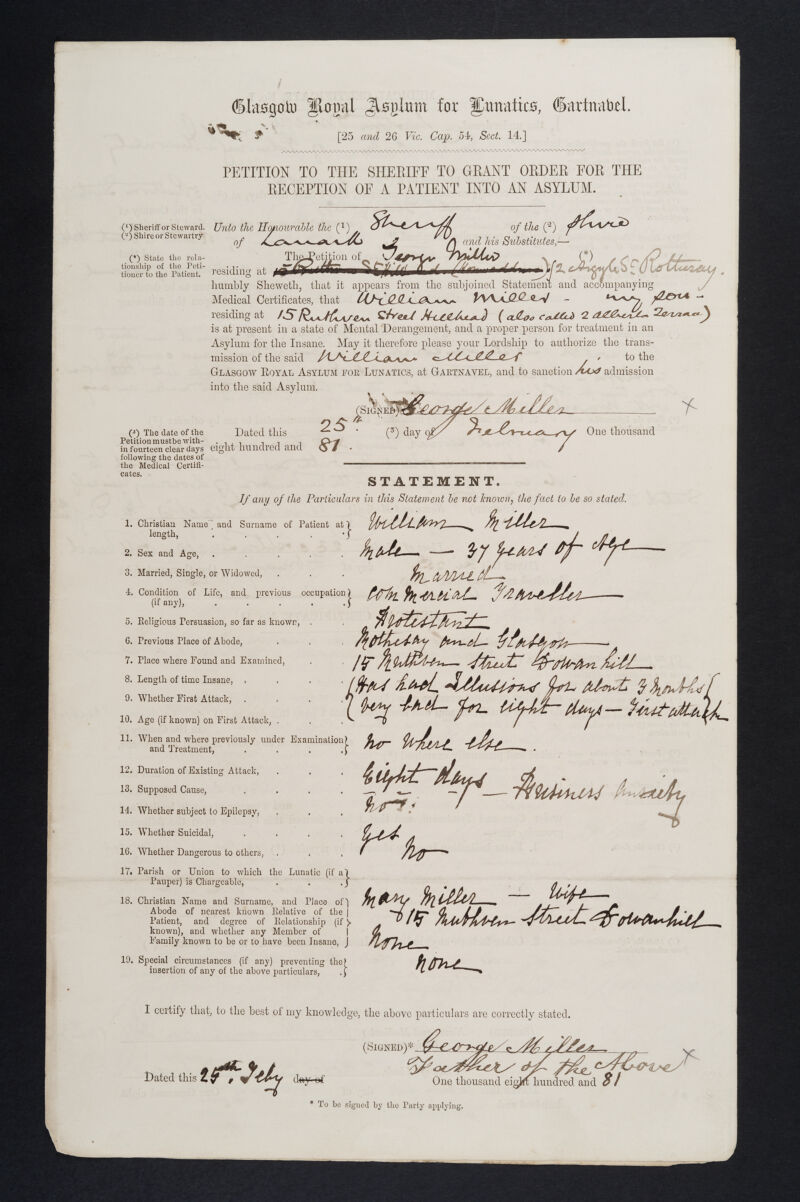 Glasgow Royal Asylum for Lunatics, Gartnabel.
[25 and 26 Vic. Cap. 54, Sect. 14.]
PETITION TO THE SHERIFF TO GRANT ORDER FOR THE
RECEPTION OF A PATIENT INTO AN ASYLUM.
(¹) Sheriff or Steward.
(²) Shire or Stewartry.
Unto the Honourable the (¹) Sheriff of the (²) Shire
of Lanark and his Substitutes,—
(³) State the rela-
tionship of the Peti-
tioner to the Patient.
The Petition of George Miller (³)
residing at 2 Argyle St. Rothesay.
humbly Sheweth, that it appears from the subjoined Statement and accompanying
Medical Certificates, that William Miller - my son -
residing at 15 Ruthven Street Hillhead (also called 2 Alberta Terrace)
is at present in a state of Mental Derangement, and a proper person for treatment in an
Asylum for the Insane. May it therefore please your Lordship to authorize the trans-
mission of the said William Miller to the
GLASGOW ROYAL ASYLUM FOR LUNATICS, at GARTNAVEL, and to sanction his admission
into the said Asylum.
(SIGNED) George Miller X
(⁴) The date of the
Petition must be with-
in fourteen clear days
following the dates of
the Medical Certifi-
cates.
Dated this 25th (³) day of February One thousand
eight hundred and 81.
STATEMENT.
If any of the Particulars in this Statement be not known, the fact to be so stated.
1. Christian Name and Surname of Patient at
length, William Miller
2. Sex and Age, Male — 37 years of Age
3. Married, Single, or Widowed, Married
4. Condition of Life, and previous occupation
(if any), Commercial Traveller
5. Religious Persuasion, so far as known, Protestant
6. Previous Place of Abode, Rothesay and Glasgow
7. Place where Found and Examined, 15 Ruthven Street Dowanhill
8. Length of time Insane, (Has had Illusions for about 3 Months)
9. Whether First Attack, (very bad for eight days — First attack
10. Age (if known) on First Attack,
11. When and where previously under Examination
and Treatment, No where else.
12. Duration of Existing Attack, Eight days
13. Supposed Cause, — Business Anxiety
14. Whether subject to Epilepsy, No
15. Whether Suicidal, Yes
16. Whether Dangerous to others, No
17. Parish or Union to which the Lunatic (if a
Pauper) is Chargeable,
18. Christian Name and Surname, and Place of
Abode of nearest known Relative of the
Patient, and degree of Relationship (if
known), and whether any Member of
Family known to be or to have been Insane,
Mary Miller — Wife
15 Ruthven Street Dowanhill
None
19. Special circumstances (if any) preventing the
insertion of any of the above particulars, None
I certify that, to the best of my knowledge, the above particulars are correctly stated.
(SIGNED)* George Miller
Father of the Above X
Dated this 25th Feby day of One thousand eight hundred and 81
* To be signed by the Party applying.